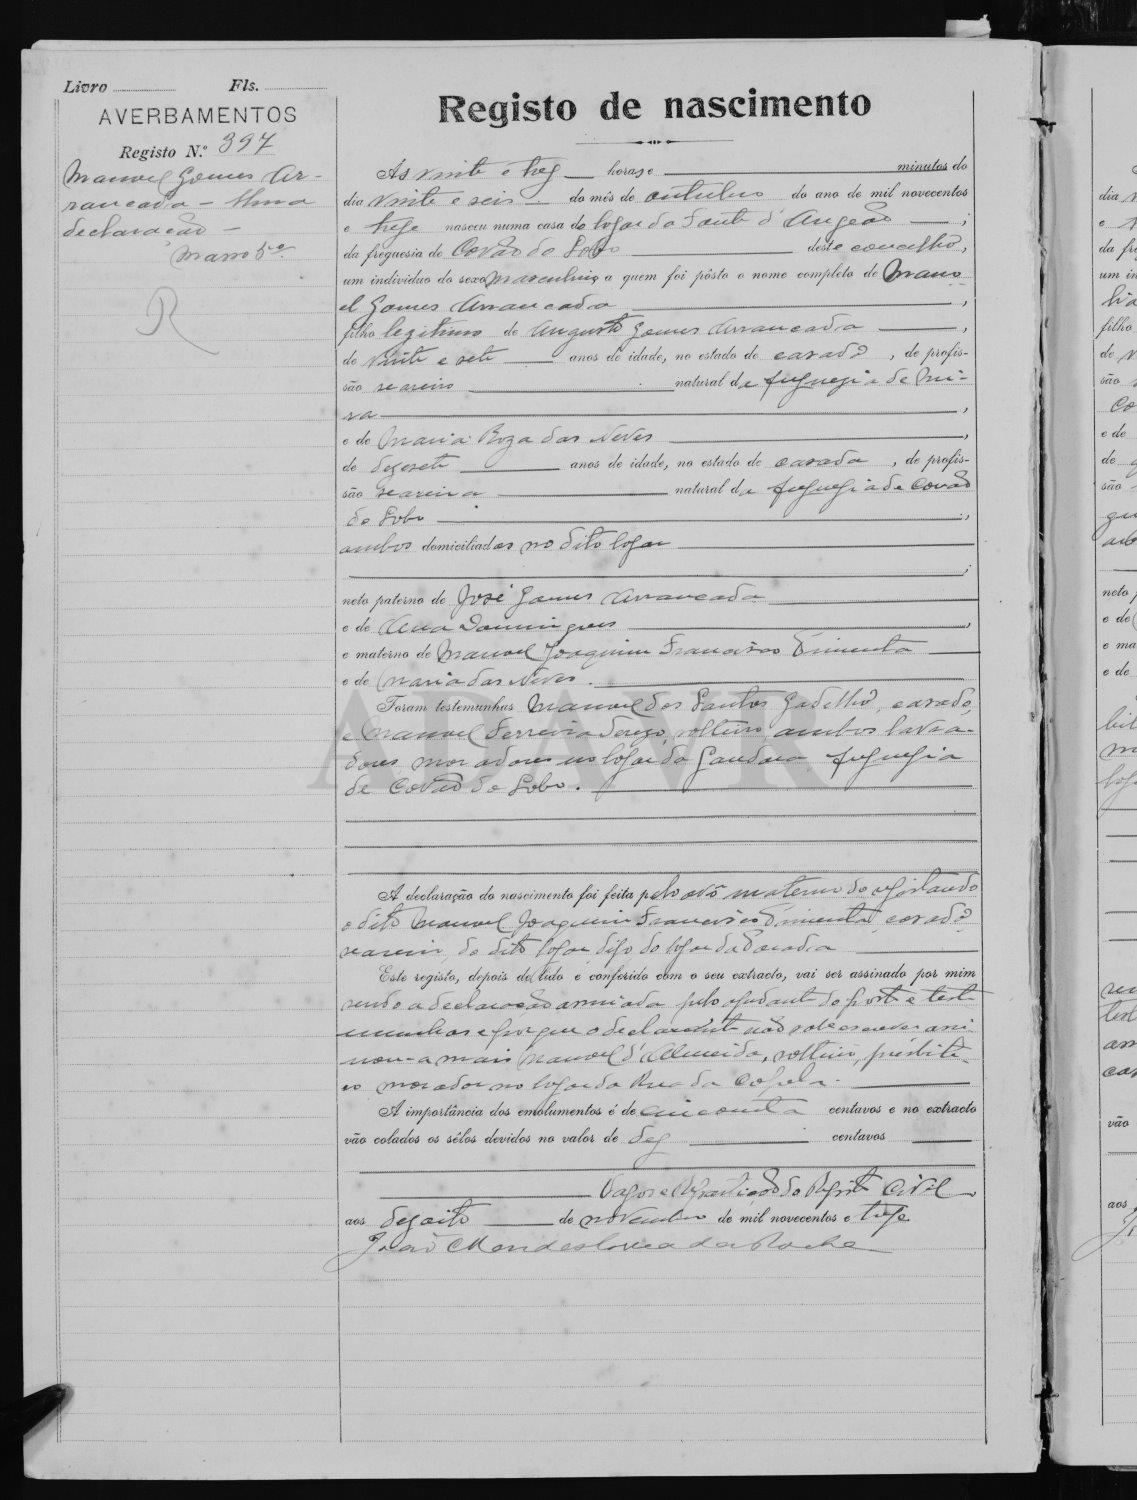 Livro Fls.
AVERBAMENTOS
Registo N.º 397
Manoel Gomes Ar-
rancada - Uma
declaração -
Masso 5º
R
Registo de nascimento
As vinte e trez horas e minutos do
dia vinte e seis do mês de outubro do ano de mil novecentos
e treze nasceu numa casa do logar da Fonte d'Angeão ;
da freguesia de Covão do Lobo deste concelho,
um indivíduo do sexo masculino a quem foi pôsto o nome completo de Mano
el Gomes Arrancada ,
filho legitimo de Augusto Gomes Arrancada ,
de vinte e sete anos de idade, no estado de casado , de profis-
são seareiro natural da freguezia de Mi-
ra ,
e de Maria Roza das Neves ,
de dezesete anos de idade, no estado de casada , de profis-
são seareira natural da freguezia de Covão
do Lobo ,
ambos domiciliados no dito logar
;
neto paterno de José Gomes Arrancada
e de Ana Domingues ,
e materno de Manoel Joaquim Francisco Pimenta
e de Maria das Neves.
Foram testemunhas Manoel dos Santos Gadelho, casado,
e Manoel Ferreira, solteiro, ambos lavra-
dores, moradores no logar da Gandara freguezia
de Covão do Lobo.
ADAVR
A declaração do nascimento foi feita pelo avô materno do registando
o dito Manoel Joaquim Francisco Pimenta, casado,
seareiro, do dito logar, digo do logar da
Este registo, depois de lido e conferido com o seu extracto, vai ser assinado por mim
sendo a declaração assinada pelo ajudante do posto e teste
munhas e porque o declarante não sabe escrever assi-
nou-a mais Manoel d'Almeida, solteiro, presbite-
ro morador no logar da Rua da Capela.
A importância dos emolumentos é de cincoenta centavos e no extracto
vão colados os sêlos devidos no valor de dez centavos
Vagos e Repartição do Registo Civil
aos dezoito de novembro de mil novecentos e treze
João Mendes Correa da Rocha